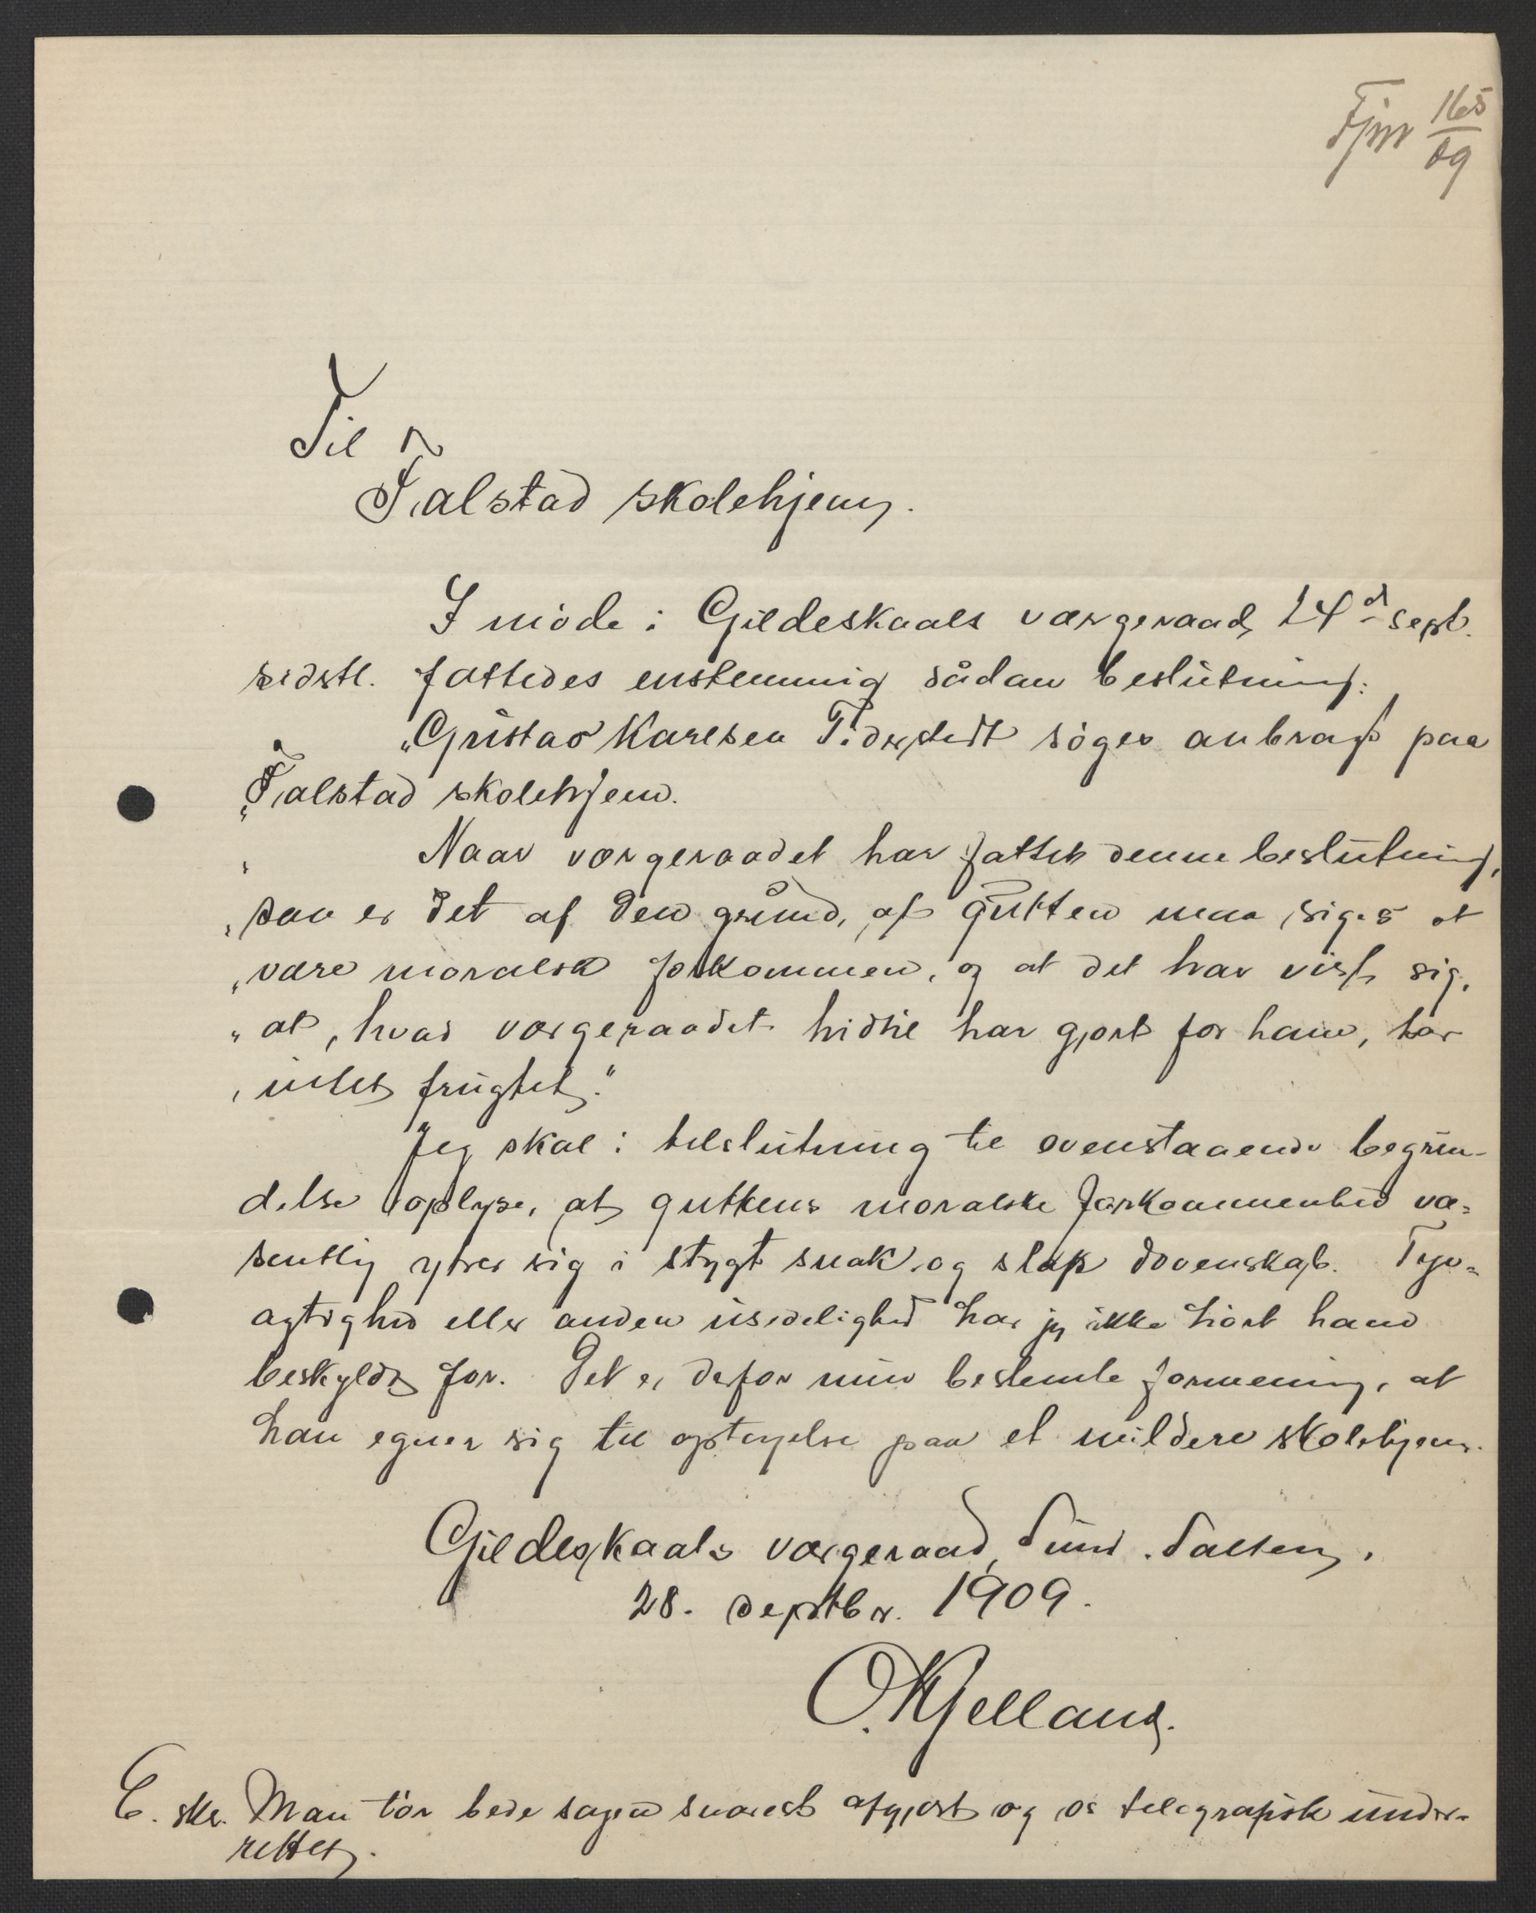 Fjnr 165/09
Til
Falstad skolehjem.
I möde i Gildeskaals værgeraad 24de sept.
sidstl. fattedes enstemmig sådan beslutning:
"Gustav Karlsen Tiderstedt söges anbragt paa
"Falstad skolehjem.
" Naar værgeraadet har fattet denne beslutning,
"saa er det af den grund, at gutten maa siges at
"være moralsk forkommen, og at det har vist sig,
"at, hvad værgeraadet hidtil har gjort for ham, har
"intet frugtet."
Jeg skal i tilslutning til ovenstaaende begrun-
delse oplyse, at guttens moralske forkommenhed væ-
sentlig ytrer sig i stygt snak og slap dovenskab. Tyv-
agtighed eller anden usedelighed har jeg ikke hört ham
beskyldt for. Det er derfor min bestemte formening, at
han egner sig til optagelse paa et mildere skolehjem.
Gildeskaals værgeraad, Sund. Salten,
28. septbr. 1909.
O. Kjelland.
E. skr. Man tör bede sagen snarest afgjort og os telegrafisk under-
rettet.